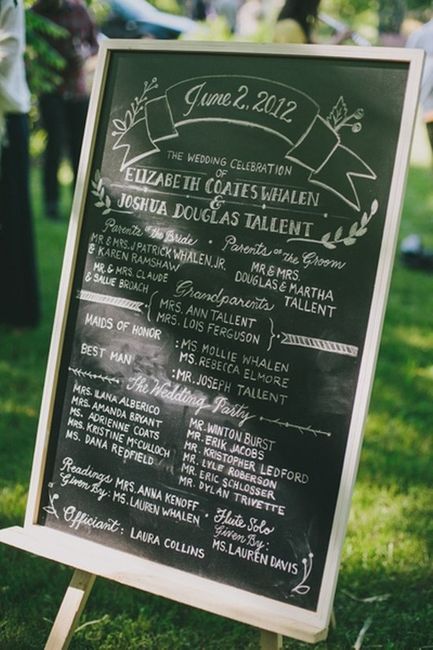 June 2, 2012
THE WEDDING CELEBRATION
OF
ELIZABETH COATES WHALEN
&
JOSHUA DOUGLAS TALLENT
Parents of the Bride
MR. & MRS. J PATRICK WHALEN, JR.
& KAREN RAMSHAW
MR. & MRS. CLAUDE
& SALLIE BROACH
Parents of the Groom
MR & MRS.
DOUGLAS & MARTHA
TALLENT
Grandparents
MRS. ANN TALLENT
MRS. LOIS FERGUSON
MAIDS OF HONOR : MS MOLLIE WHALEN
MS. REBECCA ELMORE
BEST MAN : MR. JOSEPH TALLENT
The Wedding Party
MRS. ILANA ALBERICO
MRS. AMANDA BRYANT
MS. ADRIENNE COATS
MRS. KRISTINE McCULLOCH
MS. DANA REDFIELD
MR. WINTON BURST
MR. ERIK JACOBS
MR. KRISTOPHER LEDFORD
MR. LYLE ROBERSON
MR. ERIC SCHLOSSER
MR. DYLAN TRIVETTE
Readings Given By: MRS. ANNA KENOFF
MS. LAUREN WHALEN
Flute Solo
Given By:
MS. LAUREN DAVIS
Officiant: LAURA COLLINS